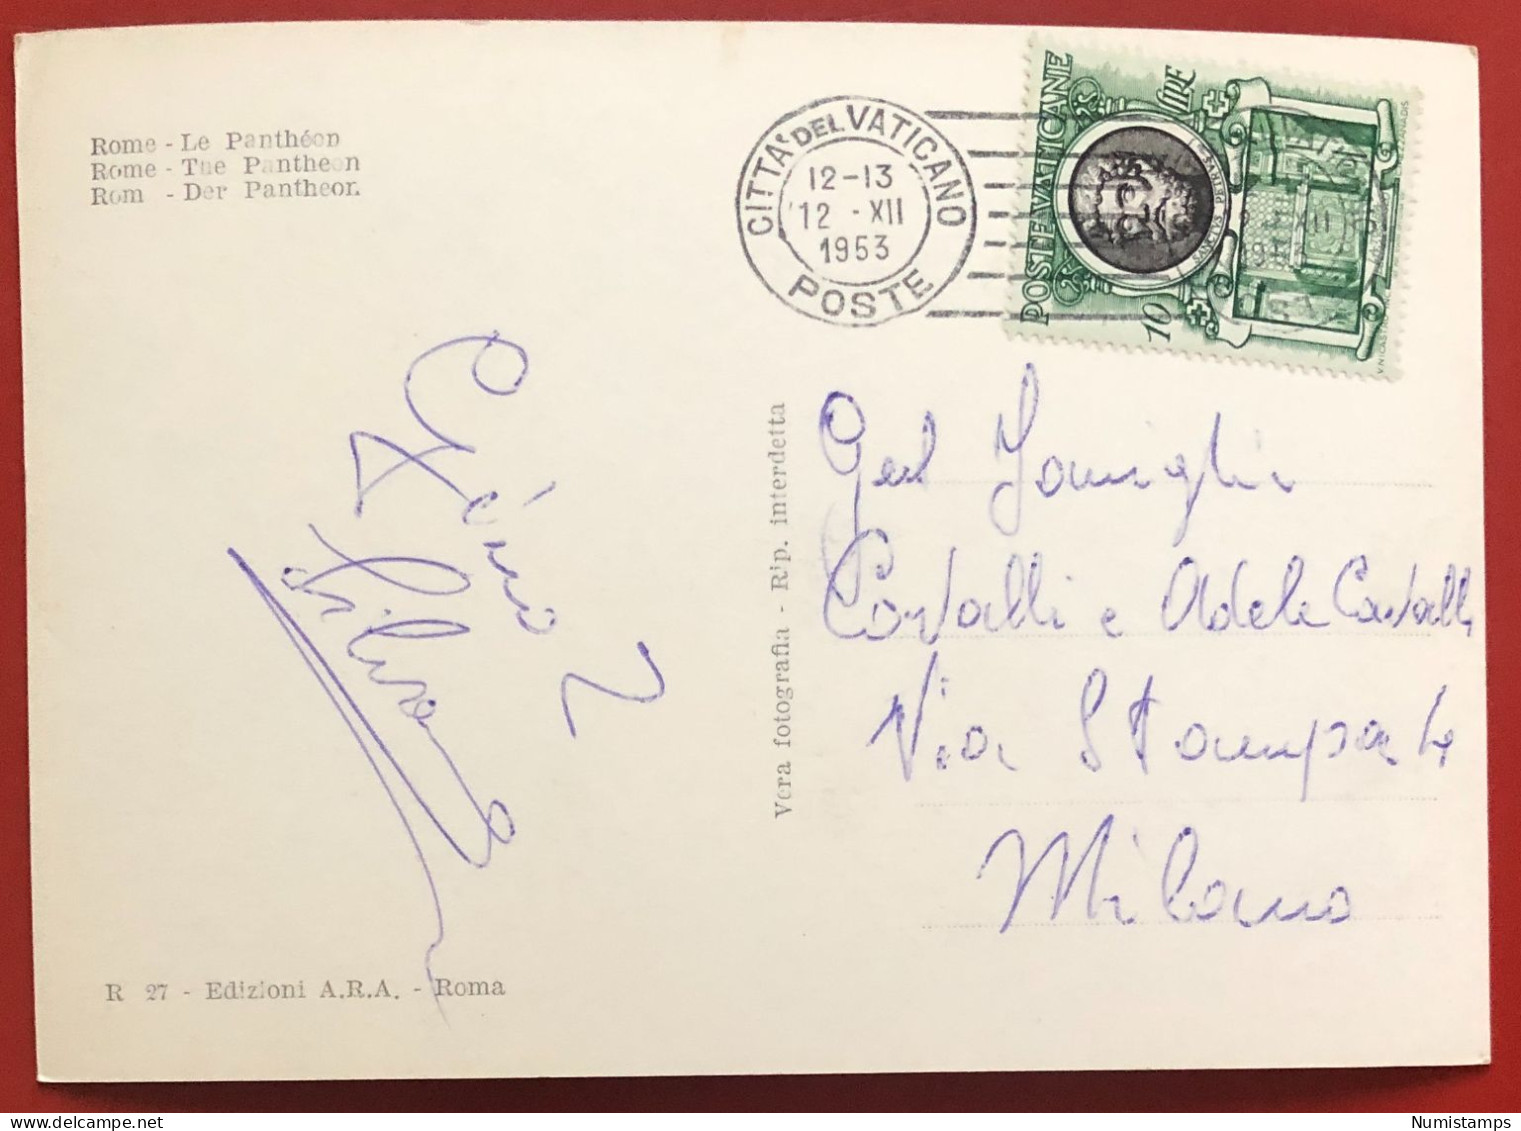 Rome - Le Panthéon
Rome - The Pantheon
Rom - Der Pantheon.
CITTA' DEL VATICANO
12-13
12 - XII
1953
POSTE
POSTE VATICANE
10 LIRE
SANCTVS PETRVS
Vera fotografia - R'p. interdetta
Gent Famiglia
Cavalli e Adele Cavalli
Via Stampa 4
Milano
R 27 - Edizioni A.R.A. - Roma
Numistamps.com